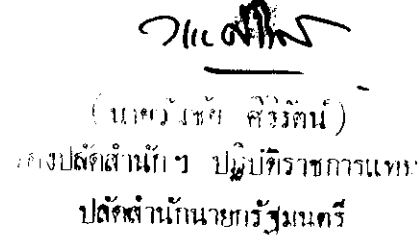 (นายวันชัย ศิริรัตน์)
รองปลัดสำนักฯ ปฏิบัติราชการแทน
ปลัดสำนักนายกรัฐมนตรี